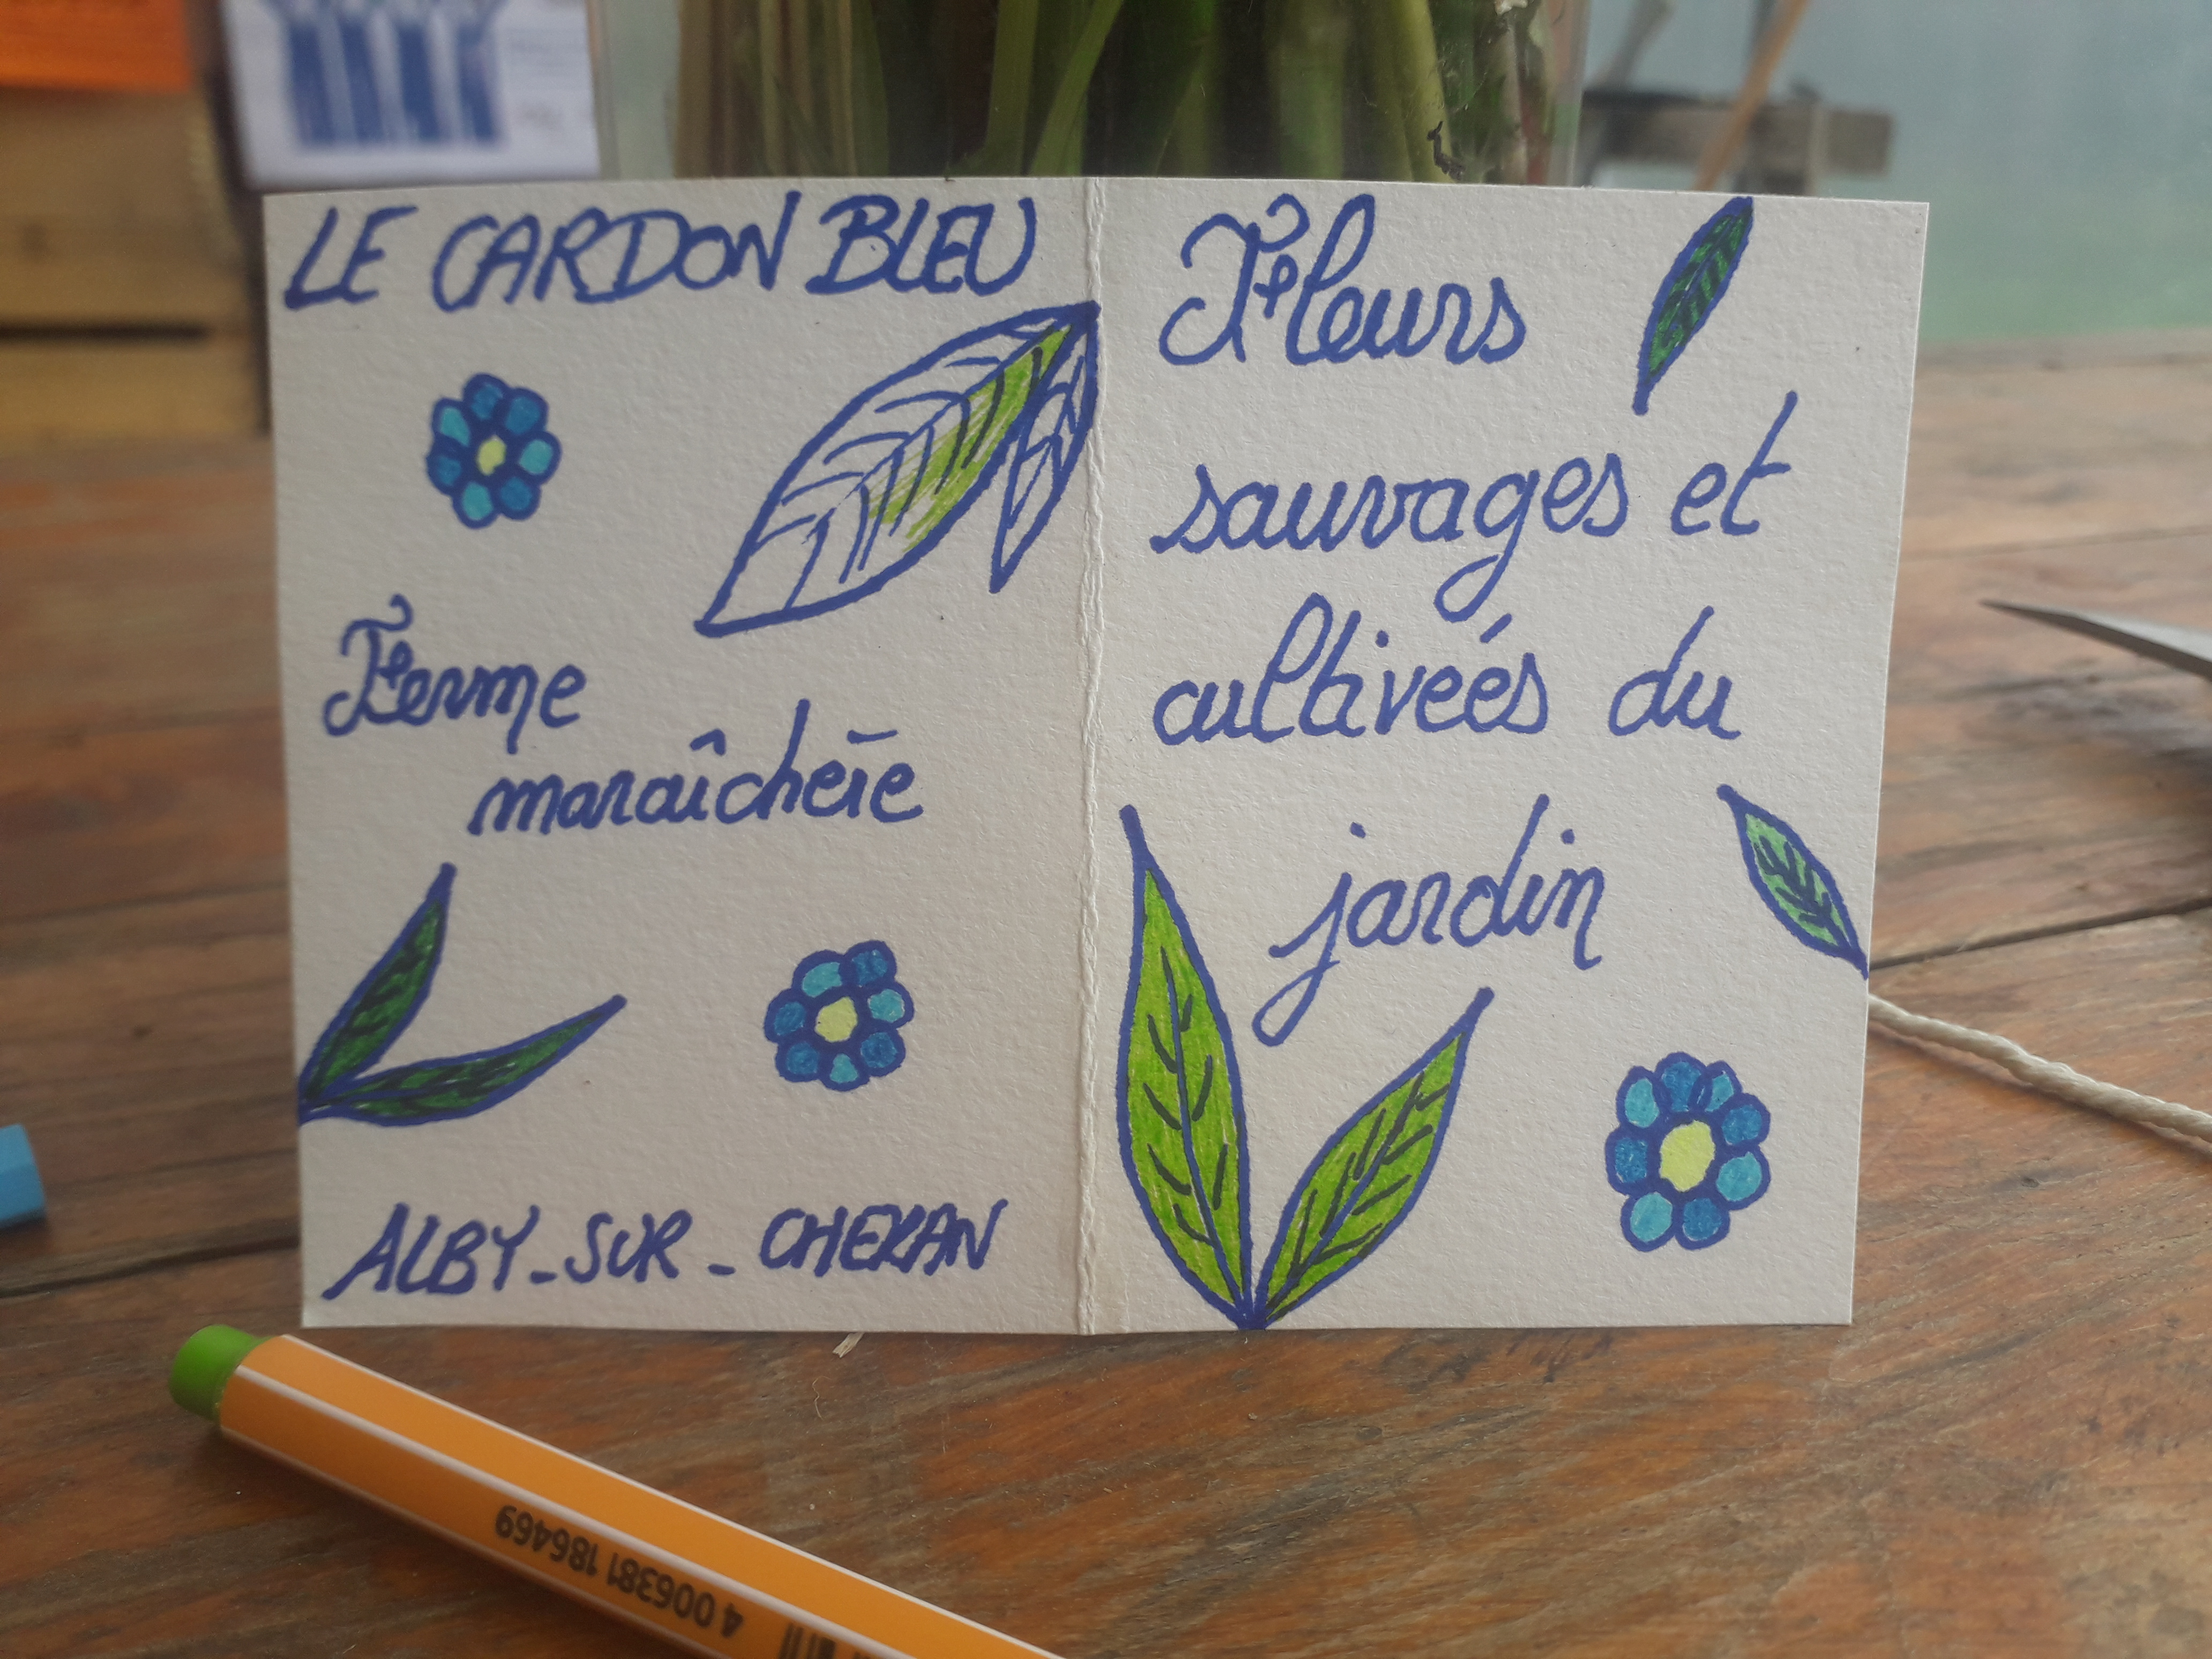 LE CARDON BLEU
Ferme
maraîchère
ALBY-SUR-CHERAN
Fleurs
sauvages et
cultiveés du
jardin
4 006381 186469